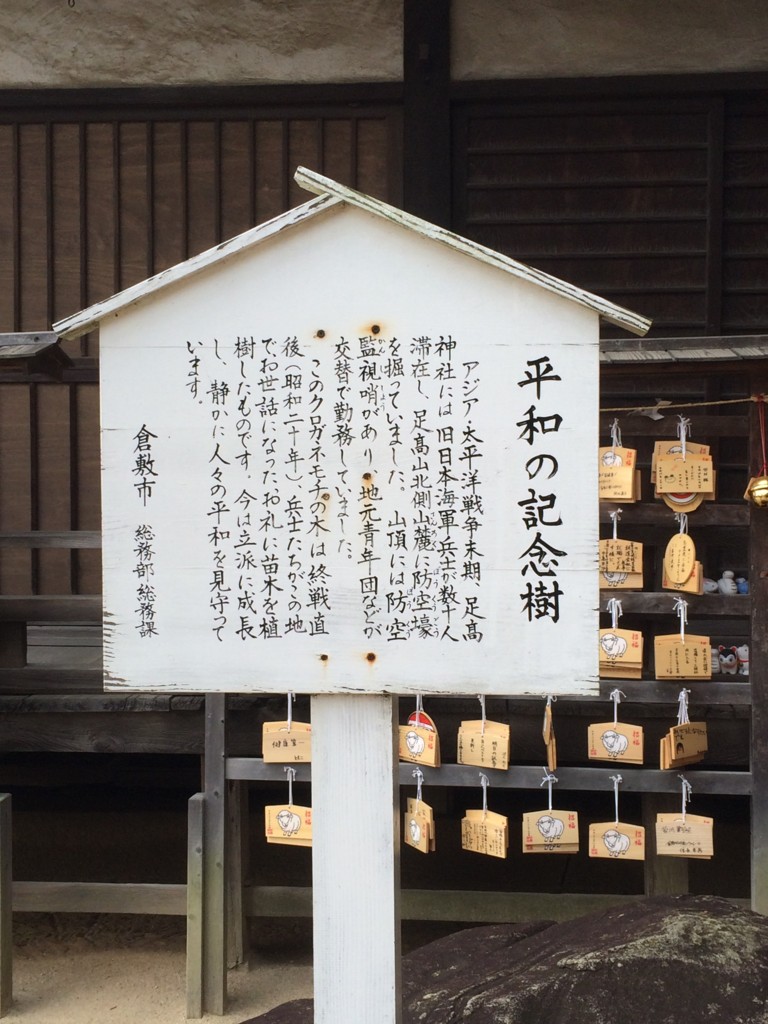 平和の記念樹
アジア・太平洋戦争末期、足高
神社には旧日本海軍兵士が数十人
滞在し、足高山北側山麓に防空壕
を掘っていました。山頂には防空
監視哨があり、地元青年団などが
交替で勤務していました。
このクロガネモチの木は終戦直
後(昭和二十年)、兵士たちがこの地
でお世話になったお礼に苗木を植
樹したものです。今は立派に成長
し、静かに人々の平和を見守って
います。
倉敷市 総務部総務課
招福
招福
招福
招福
招福
招福